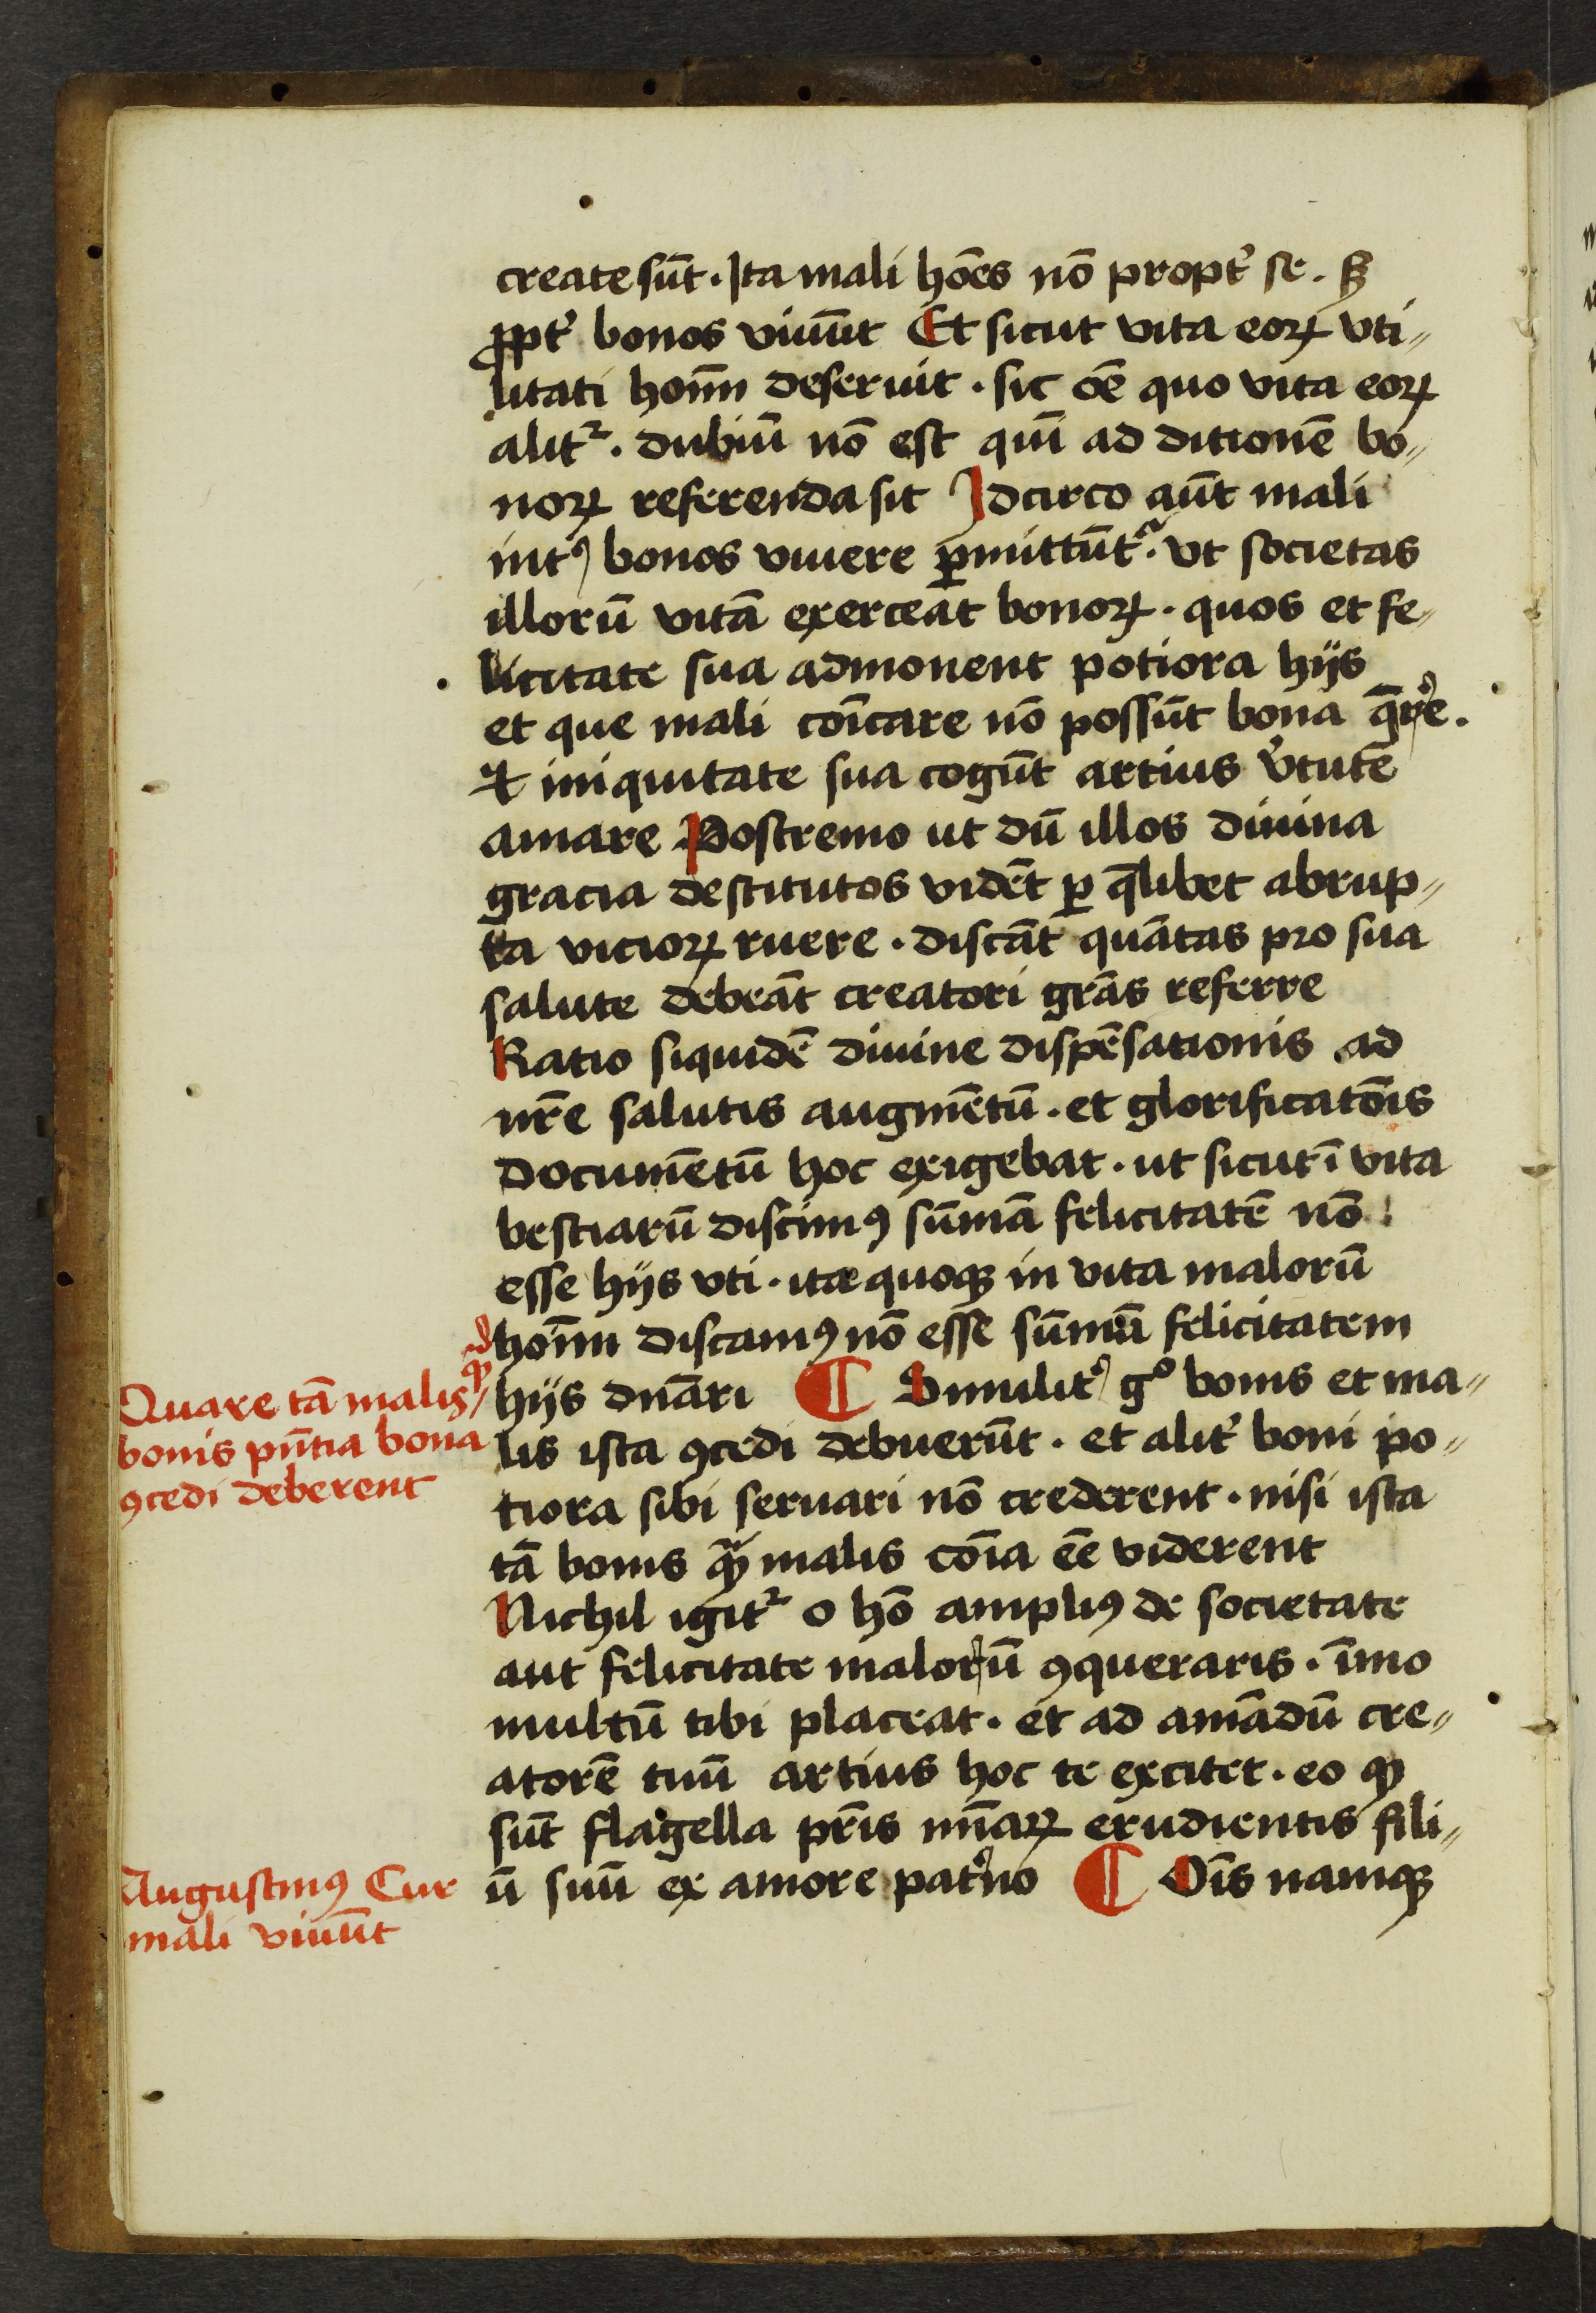 create sūt. Ita mali hōēs nō propt̓ se. sꝫ
ꝓpt̓ bonos viuūt Et sicut vita eoꝝ vti〃
litati hom̄ deseruit. sic oē̄ quo vita eoꝝ
alitᷣ. dubiū nō est qui̅ ad ditionē bo〃
noꝝ referenda sit Idcirco aūt mali
int̓ bonos viuere ꝑmittūtᷣ. vt societas
illorū vitā exerceāt bonoꝝ. quos et fe〃
licitate sua admonent potiora hijs
et que mali cōīcare nō possūt bona q̄re̓.
⁊ iniquitate sua cogūt artius v̓tutē
amare Postremo ut dū illos diuina
gracia destitutos vidēt ꝑ q̄libet abrup〃
ta vicioꝝ ruere. discāt quātas pro sua
salute debeāt creatori gr̄as referre
Ratio siquidē diuine dispēsationis ad
nr̄e salutis augmētū. et glorificatōīs
documētū hoc exigebat. ut sicut ī vita
bestiarū discimꝰ sūmā felicitatē nō
esse hijs vti. ita quoqꝫ in vita malorū
hoīm discamꝰ nō esse sūmā felicitatem
hijs dn̄ari ¶ Similit̓ gᵒ bonis et ma〃
lis ista ꝯcedi debuerūt. et alit̓ boni po〃
tiora sibi seruari nō crederent. nisi ista
tā bonis qᷓꝫ malis cōīa eē viderent
Nichil igitᷣ o hō ampliꝰ de societate
aut felicitate malorū ꝯqueraris. īmo
multū tibi placeat. et ad amādū cre〃
atorē tuū artius hoc te excitet. eo ꝙ
sūt flagella pr̄is mīaꝝ erudientis fili〃
ū suū ex amore pat̓no ¶ Oīs namqꝫ
Quare tā malis qᷓꝫ
bonis pn̄tia bona
ꝯcedi deberent
Augustinꝰ Cur
mali viuūt